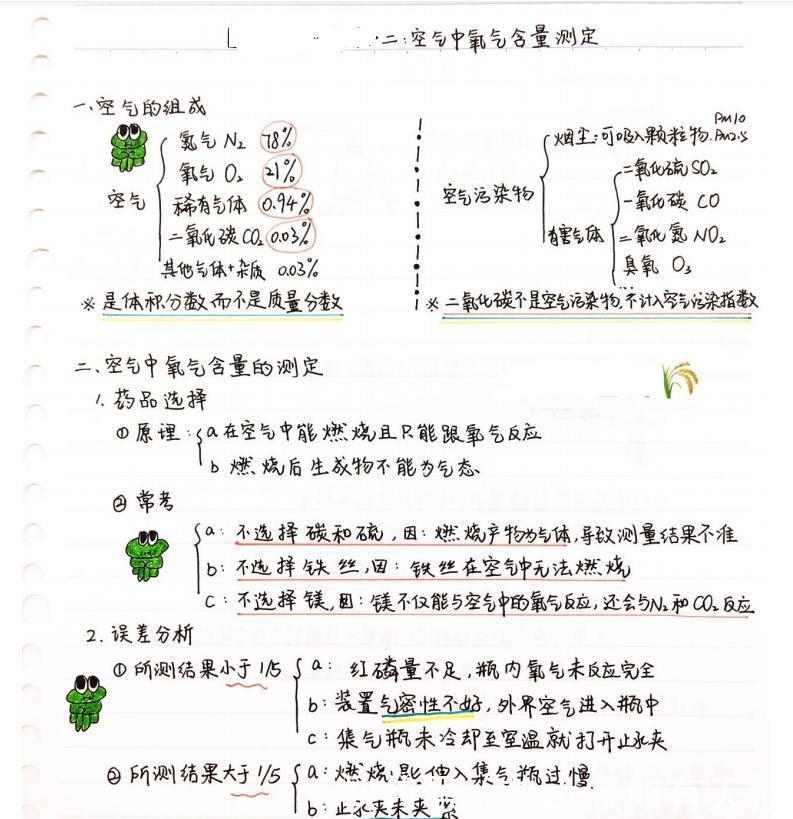 二:空气中氧气含量测定
一.空气的组成
空气
氮气 N₂ 78%
氧气 O₂ 21%
稀有气体 0.94%
二氧化碳CO₂ 0.03%
其他气体+杂质 0.03%
※ 是体积分数而不是质量分数
空气污染物
烟尘:可吸入颗粒物. PM10 PM2.5
有害气体
二氧化硫 SO₂
一氧化碳 CO
二氧化氮 NO₂
臭氧 O₃
...
※ 二氧化碳不是空气污染物,不计入空气污染指数
二、空气中氧气含量的测定
1. 药品选择
① 原理: a 在空气中能燃烧且只能跟氧气反应
b 燃烧后生成物不能为气态
② 常考
a: 不选择碳和硫,因:燃烧产物为气体,导致测量结果不准
b: 不选择铁丝,因:铁丝在空气中无法燃烧
c: 不选择镁,因:镁不仅能与空气中的氧气反应,还会与N₂和CO₂反应
2. 误差分析
① 所测结果小于1/5 a: 红磷量不足,瓶内氧气未反应完全
b: 装置气密性不好,外界空气进入瓶中
c: 集气瓶未冷却至室温就打开止水夹
② 所测结果大于1/5 a: 燃烧匙伸入集气瓶过慢.
b: 止水夹未夹紧